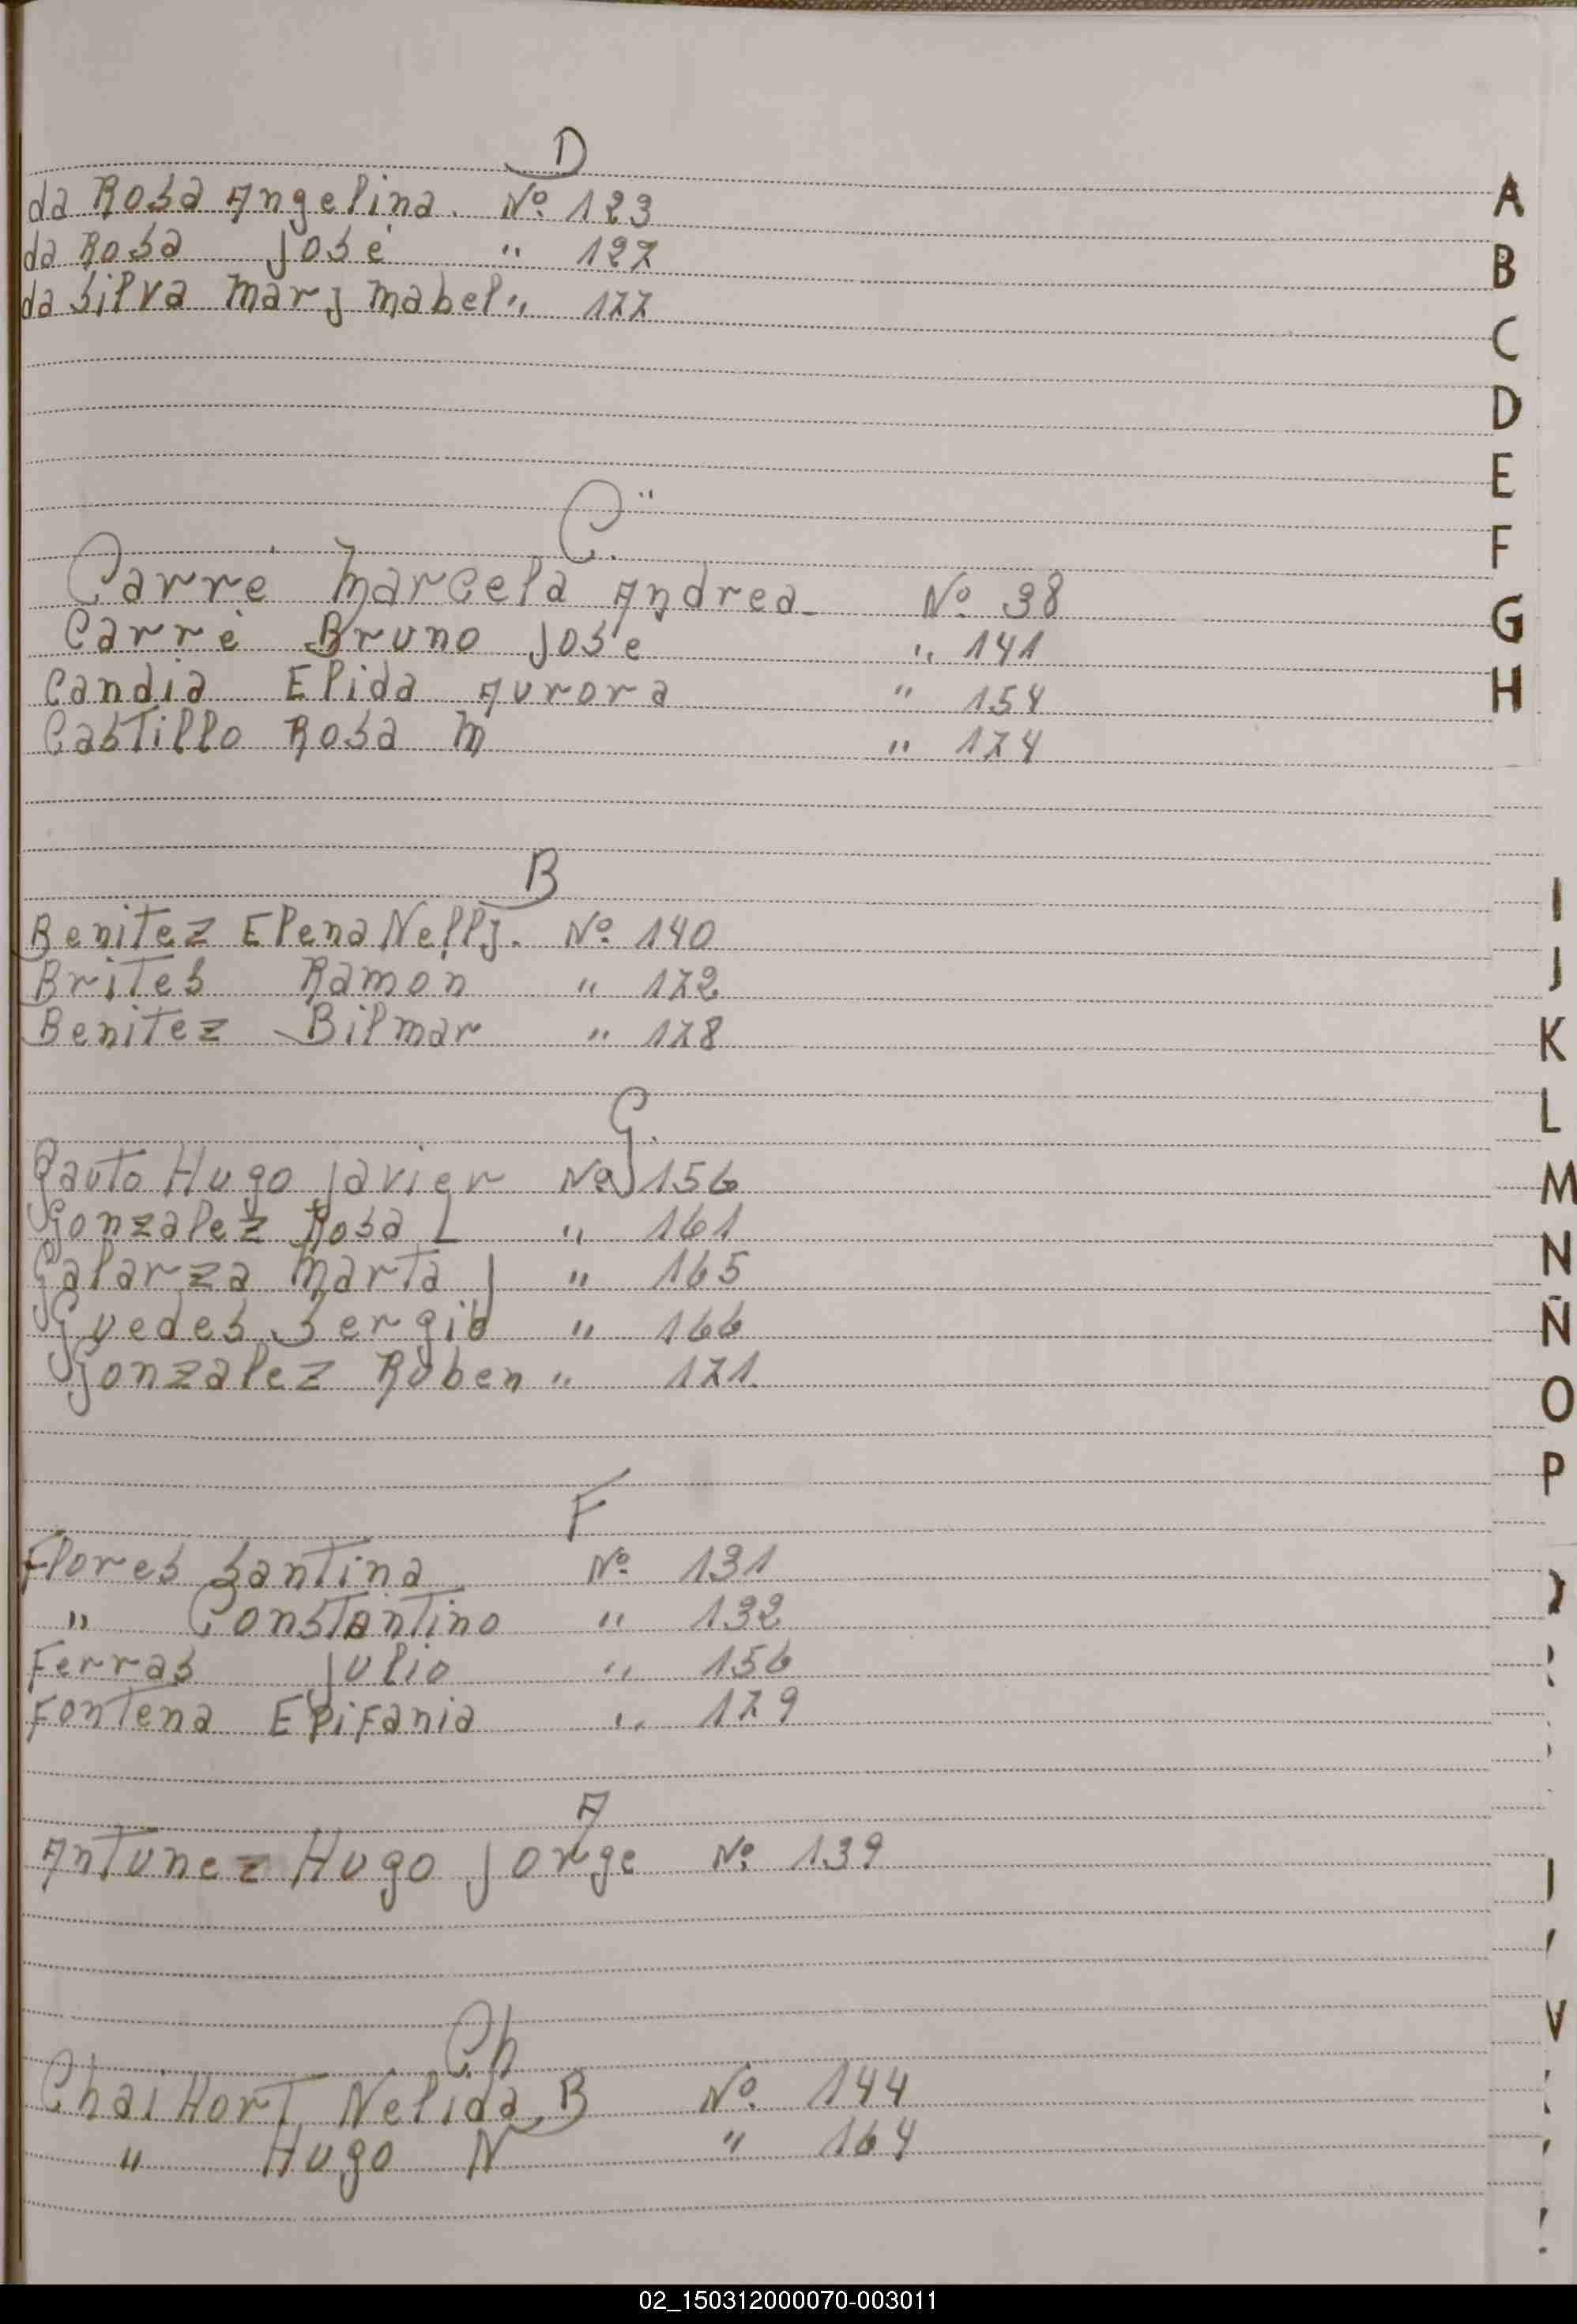 D
da Rosa Angelina. Nº 123
da Rosa José " 127
da Silva Mary Mabel " 177
C"
Carré Marcela Andrea Nº 98
Carré Bruno José " 141
Candia Elida Aurora " 154
Castillo Rosa M " 174
B
Benitez Elena Nelly. Nº 140
Brites Ramon " 172
Benitez Bilmar " 178
G.
Gauto Hugo Javier Nº 156
Gonzalez Rosa L " 161
Galarza Marta J " 165
Guedes Sergio " 166
Gonzalez Ruben " 171.
F
Flores Santina Nº 131
" Constantino " 132
Ferras Julio " 156
Fontena Epifania " 179
A
Antunez Hugo Jorge Nº 139
Ch
Chai Hort Nelida B Nº 144
" Hugo N " 164
A
B
C
D
E
F
G
H
I
J
K
L
M
N
Ñ
O
P
V
02_150312000070-003011